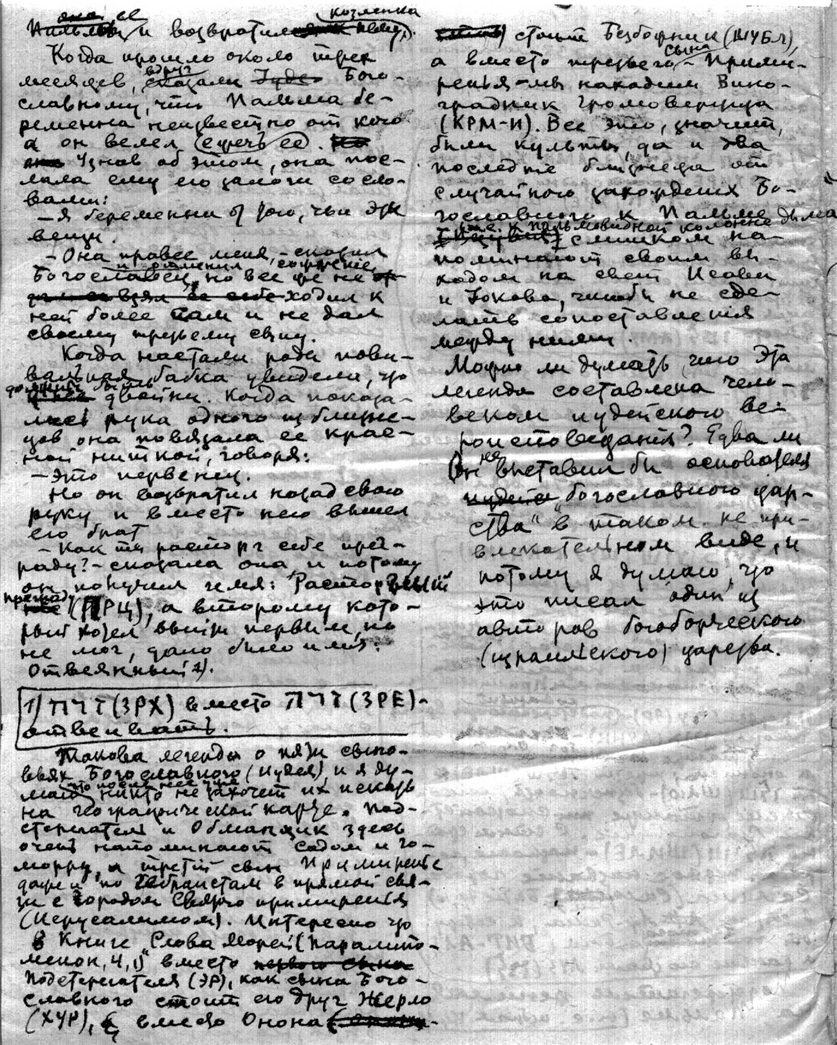 она ее козленка
и возвратил
Когда прошло около трех
месяцев, вдруг сказали Бого-
славному, что Пальма бе-
ременна неизвестно от кого
а он велел сжечь ее.
Узнав об этом, она пос-
лала ему его залоги со сло-
вами:
— Я беременна от того, чьи эти
вещи.
— Она правее меня, — сказал
Богославец, и отменил сожжение, но все же не
ходил к
ней более сам и не дал
своему третьему сыну.
Когда настали роды пови-
вальная бабка увидела, что
должны быть двойни. Когда показа-
лась рука одного из близне-
цов она повязала ее крас-
ной ниткой, говоря:
— Это первенец.
Но он возвратил назад свою
руку и вместо него вышел
его брат
— Как ты расторг себе прег-
раду? — сказала она и потому
он получил имя: Расторгший
преграду (ПРЦ), а второму кото-
рый хотел выйти первым, но
не мог, дано было имя:
Отвеянный 1).
1) חרז (ЗРХ) вместо (ЗРЕ) -
отвеивать.
Такова легенда о пяти сыно-
вьях Богославного (Иудея), и я ду-
маю что после нее уже никто не захочет их искать
на географической карте. Под-
стерегатель и Обманщик здесь
очень напоминают Содом и Го-
морру, а третий сын Примиренье
даже и по Гебраистам в прямой свя-
зи с городом Святого примиренья
(Иерусалимом). Интересно что
в Книге „Слова Морей (Паралипо-
менон, 4,1)" вместо
Подстерегателя (ЭР), как сына Бого-
славного стоит его друг Жерло
(ХУР), вместо Онона
стоит Безборник (ШУБЛ),
а вместо третьего сына — Прими-
ренья — мы находим Вино-
градник Громовержца
(КРМ-И). Все это, значит,
были культы, да и два
последние близнеца от
случайного захождения Бо-
гославного к Пальме
т.е. к пальмовидной колонне дыма
слишком на-
поминают своим вы-
ходом на свет Исава
и Иакова, чтобы не сде-
лать сопоставления
между ними.
Можно ли думать, что эта
легенда составлена чело-
веком иудейского ве-
роисповедания? Едва ли
он не выставил бы основателя
„богославного цар-
ства" в таком не при-
влекательном виде, и
потому я думаю, что
это писал один из
авторов богоборческого
(израильского) царства.